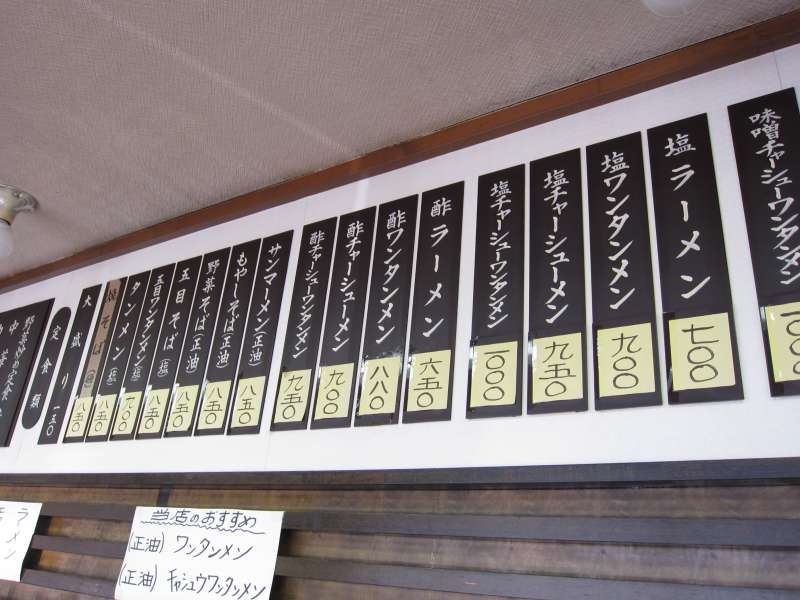 味噌チャーシューワンタンメン
塩ラーメン
七〇〇
塩ワンタンメン
九〇〇
塩チャーシューメン
九五〇
塩チャーシューワンタンメン
一〇〇〇
酢ラーメン
六五〇
酢ワンタンメン
八八〇
酢チャーシューメン
九〇〇
酢チャーシューワンタンメン
九五〇
サンマーメン(正油)
八五〇
もやしそば(正油)
八五〇
野菜そば(正油)
八五〇
五目そば(塩)
八五〇
五目ワンタンメン(塩)
八五〇
タンメン(塩)
そば
八五〇
大盛り
一五〇
定食類
当店のおすすめ
(正油) ワンタンメン
(正油) チャシュウワンタンメン
ラーメン